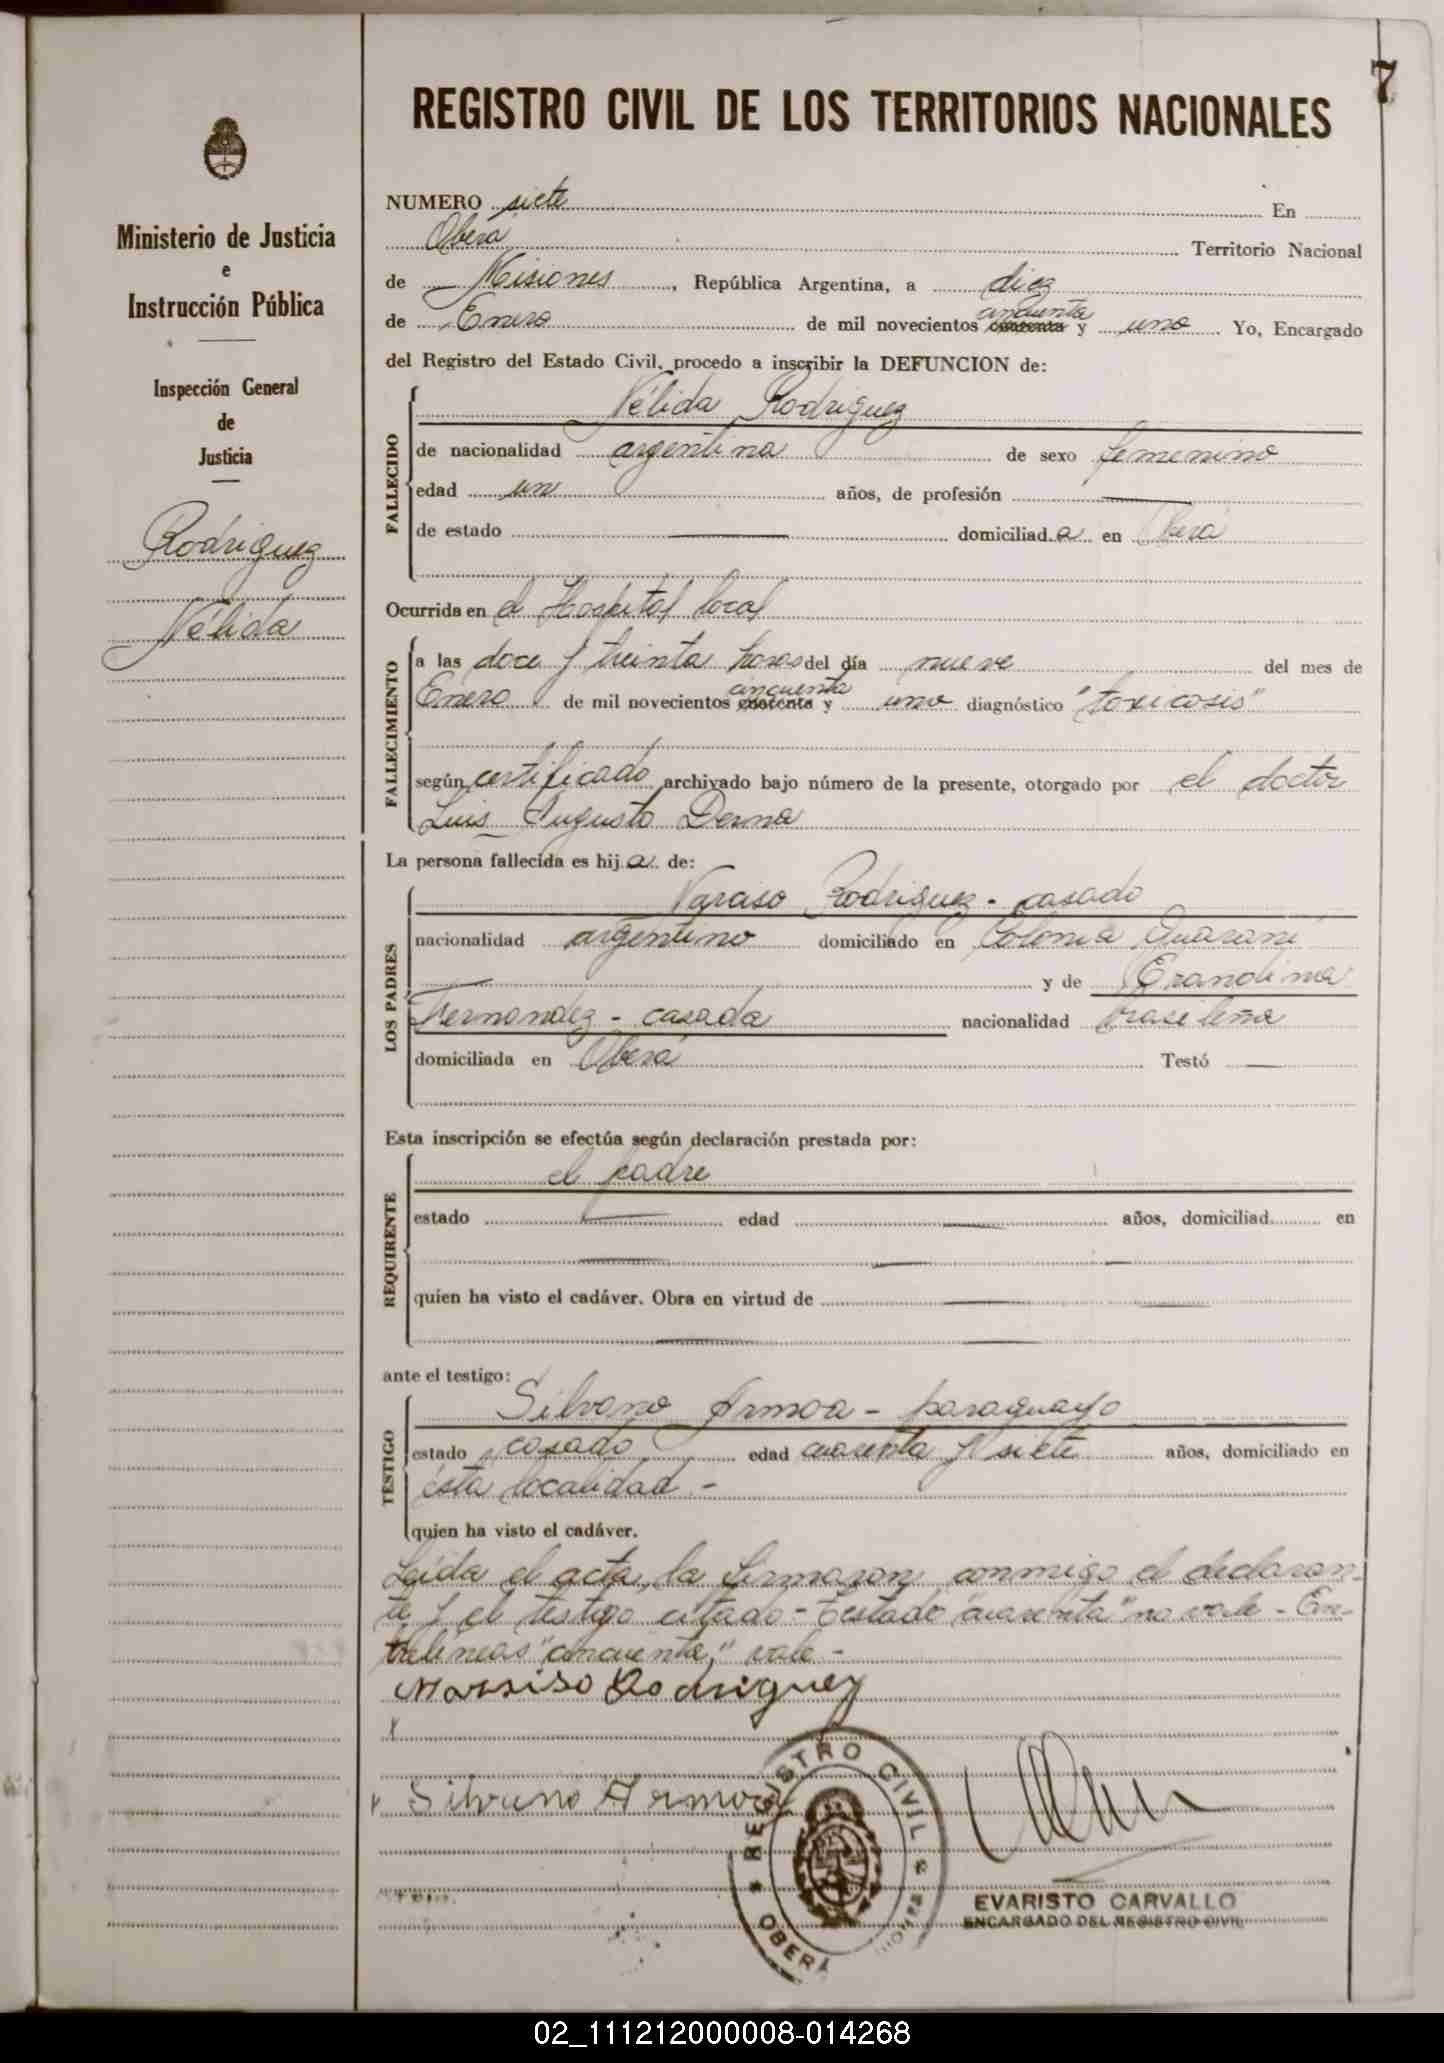 7
REGISTRO CIVIL DE LOS TERRITORIOS NACIONALES
Ministerio de Justicia
e
Instrucción Pública
Inspección General
de
Justicia
Rodriguez
Nélida
NUMERO siete En
Oberá Territorio Nacional
de Misiones, República Argentina, a diez
cincuenta
de Enero de mil novecientos cuarenta y uno. Yo, Encargado
del Registro del Estado Civil, procedo a inscribir la DEFUNCION de:
FALLECIDO
Nélida Rodriguez
de nacionalidad argentina de sexo femenino
edad un años, de profesión —
de estado — domiciliada en Oberá
Ocurrida en el Hospital local
FALLECIMIENTO
a las doce y treinta horas del día nueve del mes de
cincuenta
Enero de mil novecientos cuarenta y uno diagnóstico "toxicosis"
según certificado archivado bajo número de la presente, otorgado por el doctor
Luis Augusto Derna
La persona fallecida es hija de:
LOS PADRES
Narciso Rodriguez - casado
nacionalidad argentino domiciliado en Colonia Guaraní
y de
Fernandez - casada nacionalidad brasileña
domiciliada en Oberá Testó —
Esta inscripción se efectúa según declaración prestada por:
REQUIRENTE
el padre
estado — edad — años, domiciliad en
— — —
quien ha visto el cadáver. Obra en virtud de — —
— —
ante el testigo:
TESTIGO
Silvano Armoa - paraguayo
estado casado edad cuarenta y siete años, domiciliado en
ésta localidad -
quien ha visto el cadáver.
Leída el acta, la firmaron conmigo el declaran-
te y el testigo citado - Testado "cuarenta" no vale - En-
trelíneas "cincuenta," vale -
Narsiso Rodriguez
x
x Silvano Armoa
REGISTRO CIVIL
OBERÁ
EVARISTO CARVALLO
ENCARGADO DEL REGISTRO CIVIL
02_111212000008-014268